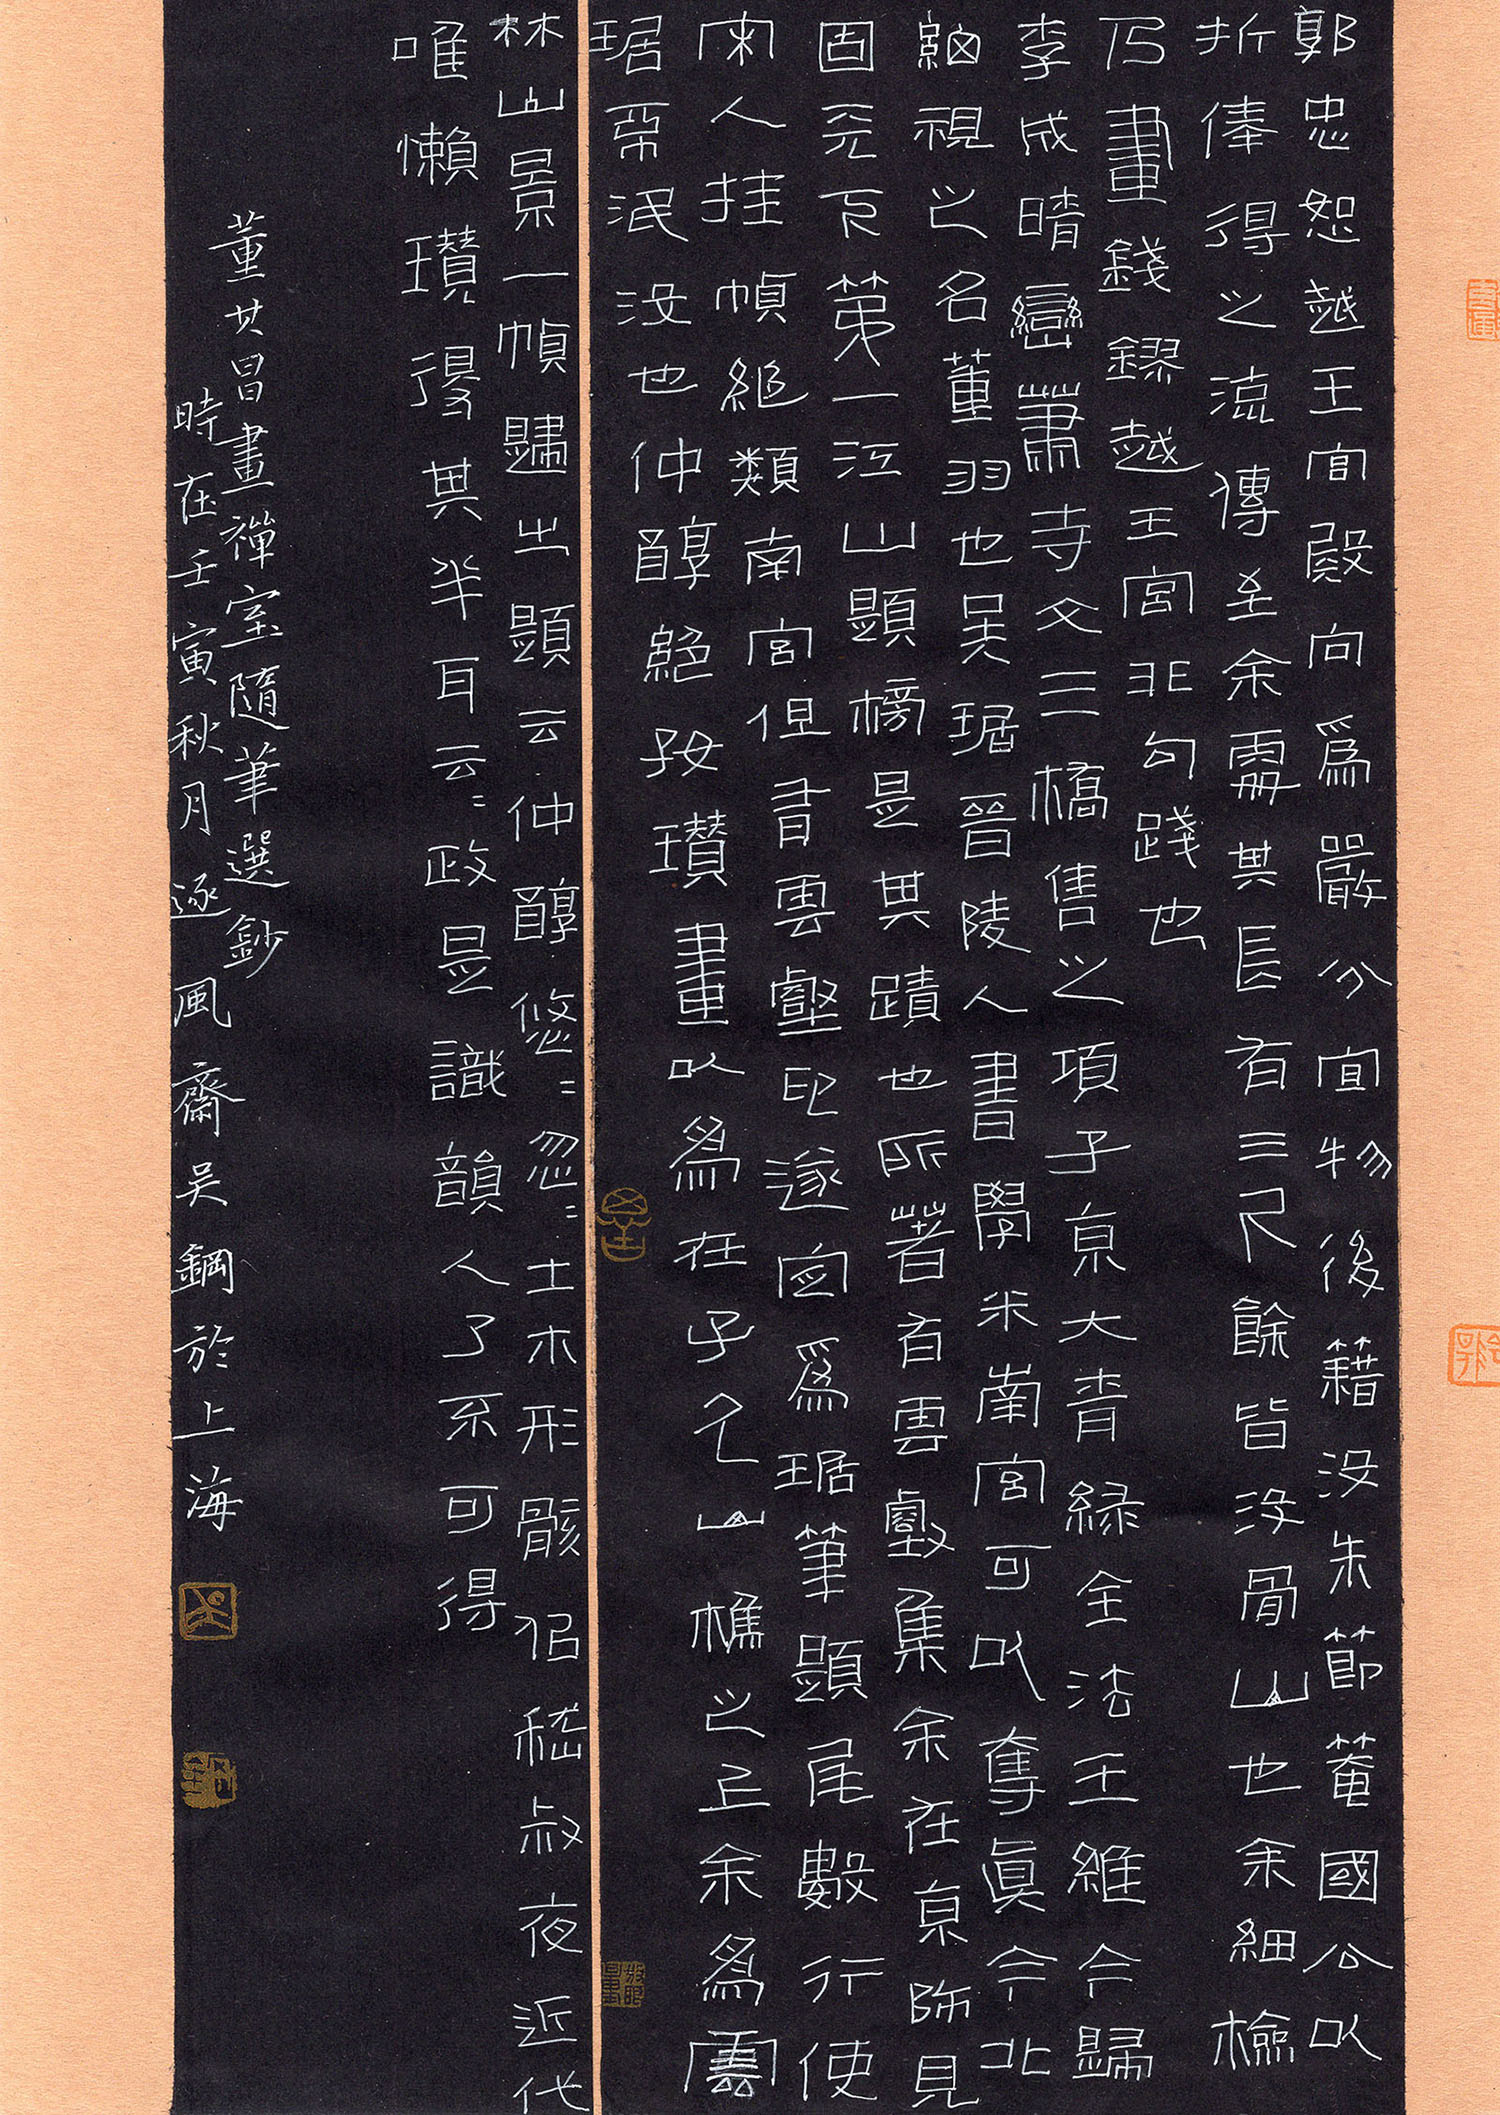 郭忠恕越王宮殿向為嚴分宜物後籍沒朱節菴國公以
折俸得之流傳至余處其長有三尺餘皆沒骨山也余細檢
乃畫錢鏐越王宮非勾踐也
李成晴巒蕭寺文三橋售之項子京大青綠全法王維今歸
細視之名董羽也吳琚晉陵人書學米南宮可以奪真今北
固天下第一江山題榜是其蹟也所著有雲壑集余在京師見
宋人挂幀絕類南宮但有雲壑印遂定為琚筆題尾數行使
琚不泯沒也仲醇絕好瓚畫以為在子久山樵之上余為寫
林山景一幀歸出題云仲醇悠〻忽〻土木形骸似嵇叔夜近代
唯懶瓚得其半耳云〻政是識韻人了不可得
董其昌畫禪室隨筆選鈔
時在壬寅秋月逐風齋吳鋼於上海